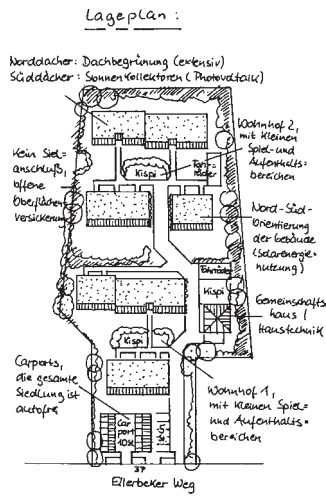 Lageplan:
Norddächer: Dachbegrünung (extensiv)
Süddächer: Sonnenkollektoren (Photovoltaik)
Wohnhof 2,
mit kleinen
Spiel- und
Aufenthalts=
bereichen
Kein Siel=
anschluß,
offene
Oberflächen
versickerung
Kispi
Fahr=
räder
Nord-Süd-
Orientierung
der Gebäude
(Solarenergie=
nutzung)
Fahrräder
Kispi
Gemeinschafts
haus /
Haustechnik
Kispi
Carports,
die gesamte
Siedlung ist
autofrei
Wohnhof 1,
mit kleinen Spiel=
und Aufenthalts=
bereichen
Car
port
10St.
37
Ellerbeker Weg